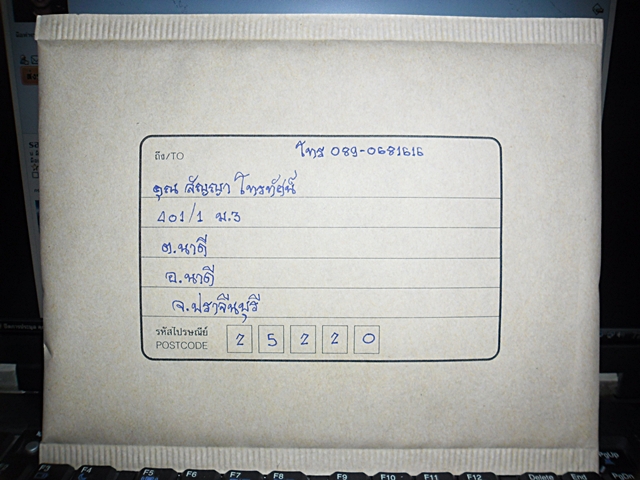 ถึง/TO โทร 089-0681616
คุณ สัญญา โทรทัศน์
401/1 ม.3
ต.นาดี
อ.นาดี
จ.ปราจีนบุรี
รหัสไปรษณีย์
POSTCODE 2 5 2 2 0
F3 F4 F5 F6 F7 F8 F9 F10 F11 F12 Delete End PgDn
PgUp